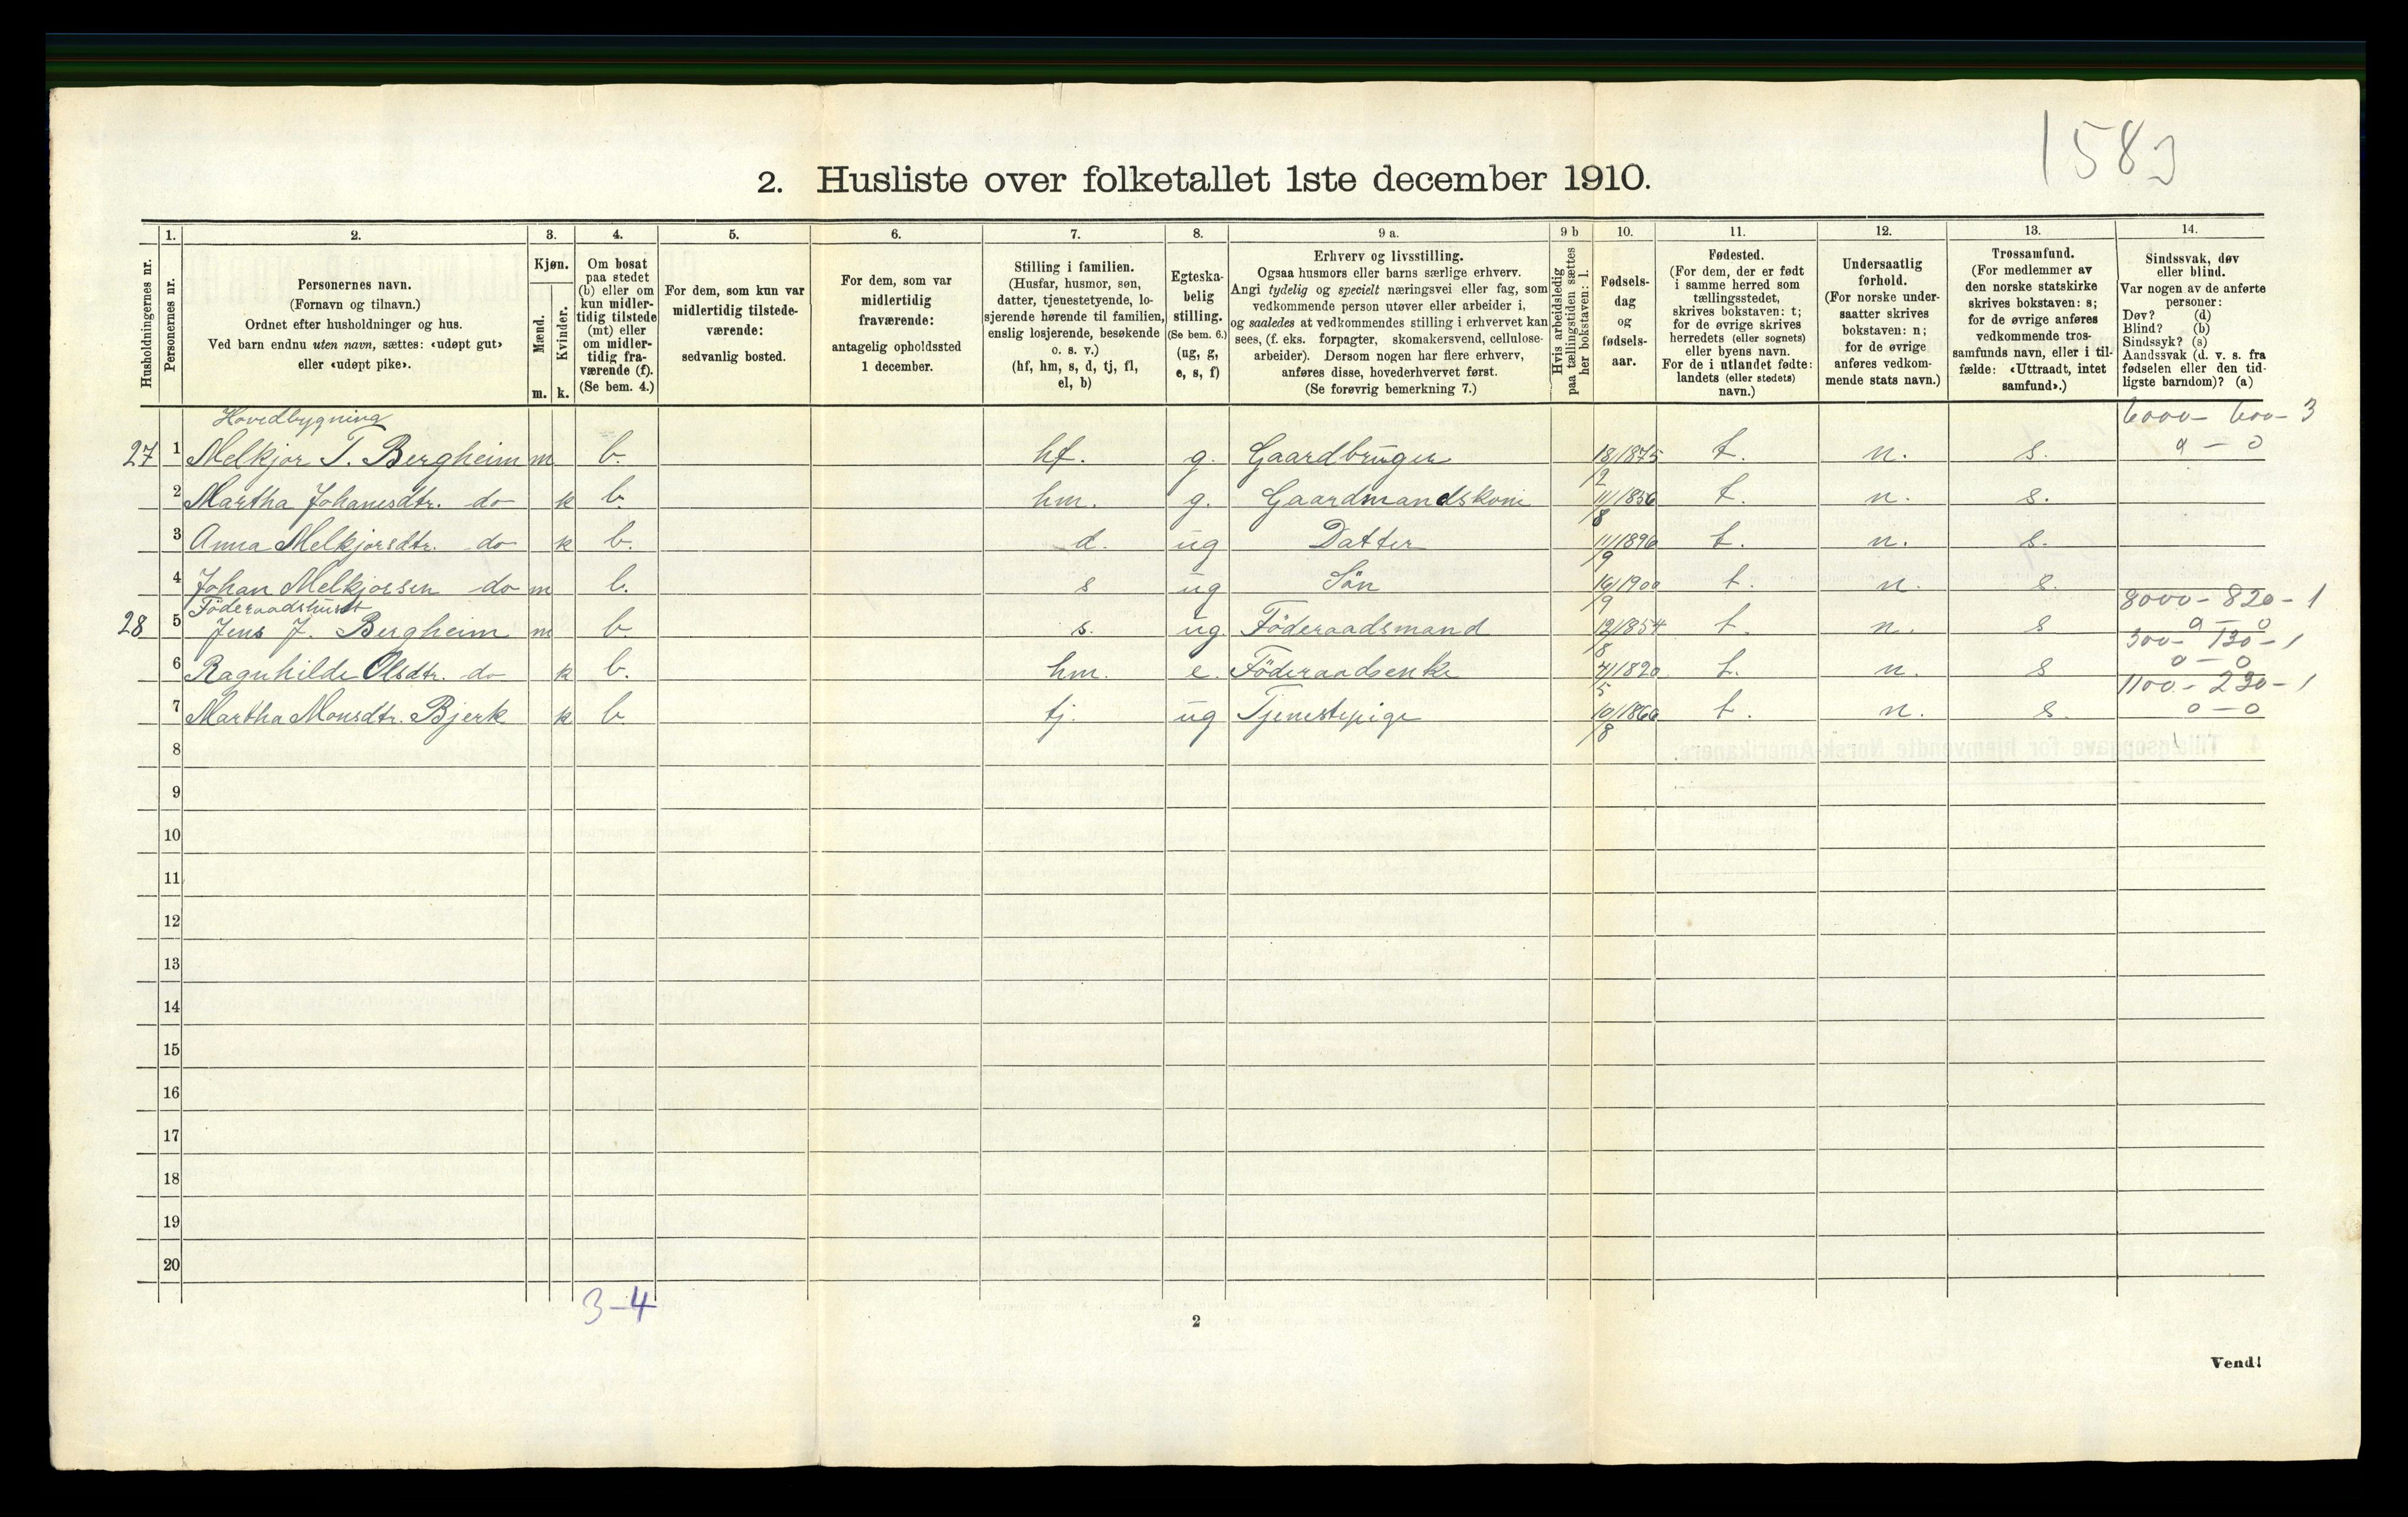 1583
2. Husliste over folketallet 1ste december 1910.
1. 2. 3. 4. 5. 6. 7. 8. 9 a. 9 b 10. 11. 12. 13. 14.
Husholdningernes nr.
Personernes nr.
Personernes navn.
(Fornavn og tilnavn.)
Ordnet efter husholdninger og hus.
Ved barn endnu uten navn, sættes: «udøpt gut»
eller «udøpt pike».
Kjøn.
Mænd.
Kvinder.
m. k.
Om bosat
paa stedet
(b) eller om
kun midler-
tidig tilstede
(mt) eller
om midler-
tidig fra-
værende (f).
(Se bem. 4.)
For dem, som kun var
midlertidig tilstede-
værende:
sedvanlig bosted.
For dem, som var
midlertidig
fraværende:
antagelig opholdssted
1 december.
Stilling i familien.
(Husfar, husmor, søn,
datter, tjenestetyende, lo-
sjerende hørende til familien,
enslig losjerende, besøkende
o. s. v.)
(hf, hm, s, d, tj, fl,
el, b)
Egteska-
belig
stilling.
(Se bem. 6.)
(ug, g,
e, s, f)
Erhverv og livsstilling.
Ogsaa husmors eller barns særlige erhverv.
Angi tydelig og specielt næringsvei eller fag, som
vedkommende person utøver eller arbeider i,
og saaledes at vedkommendes stilling i erhvervet kan
sees, (f. eks. forpagter, skomakersvend, cellulose-
arbeider). Dersom nogen har flere erhverv,
anføres disse, hovederhvervet først.
(Se forøvrig bemerkning 7.)
Hvis arbeidsledig
paa tællingstiden sættes
her bokstaven: l.
Fødsels-
dag
og
fødsels-
aar.
Fødested.
(For dem, der er født
i samme herred som
tællingsstedet,
skrives bokstaven: t;
for de øvrige skrives
herredets (eller sognets)
eller byens navn.
For de i utlandet fødte:
landets (eller stedets)
navn.)
Undersaatlig
forhold.
(For norske under-
saatter skrives
bokstaven: n;
for de øvrige
anføres vedkom-
mende stats navn.)
Trossamfund.
(For medlemmer av
den norske statskirke
skrives bokstaven: s;
for de øvrige anføres
vedkommende tros-
samfunds navn, eller i til-
fælde: «Uttraadt, intet
samfund».)
Sindssvak, døv
eller blind.
Var nogen av de anførte
personer:
Døv? (d)
Blind? (b)
Sindssyk? (s)
Aandssvak (d. v. s. fra
fødselen eller den tid-
ligste barndom)? (a)
Hovedbygning 6000 - 600 - 3
27 1 Melkjor T. Bergheim m b. hf. g. Gaardbruger 18/2 1875 t. n. s. 0 - 0
2 Martha Johanesdtr. do k b. hm. g. Gaardmandskone 11/8 1856 t. n. s.
3 Anna Melkjorsdtr. do k b. d. ug Datter 11/9 1896 t. n. s.
4 Johan Melkjorsen do m b. s ug Sön 16/9 1900 t. n. s.
Föderaadshuset 8000 - 820 - 1
28 5 Jens J. Bergheim m b. s. ug. Föderaadsmand 12/8 1854 t. n. s 0 - 0
300 - 130 - 1
6 Ragnhilde Olsdtr. do k b. hm. e. Föderaadsenke 4/5 1820 t. n. s 0 - 0
1100 - 230 - 1
7 Martha Monsdtr. Bjerk k b tj. ug Tjenestepige 10/8 1860 t. n. s. 0 - 0
8
9
10
11
12
13
14
15
16
17
18
19
20
3-4
2
Vend!